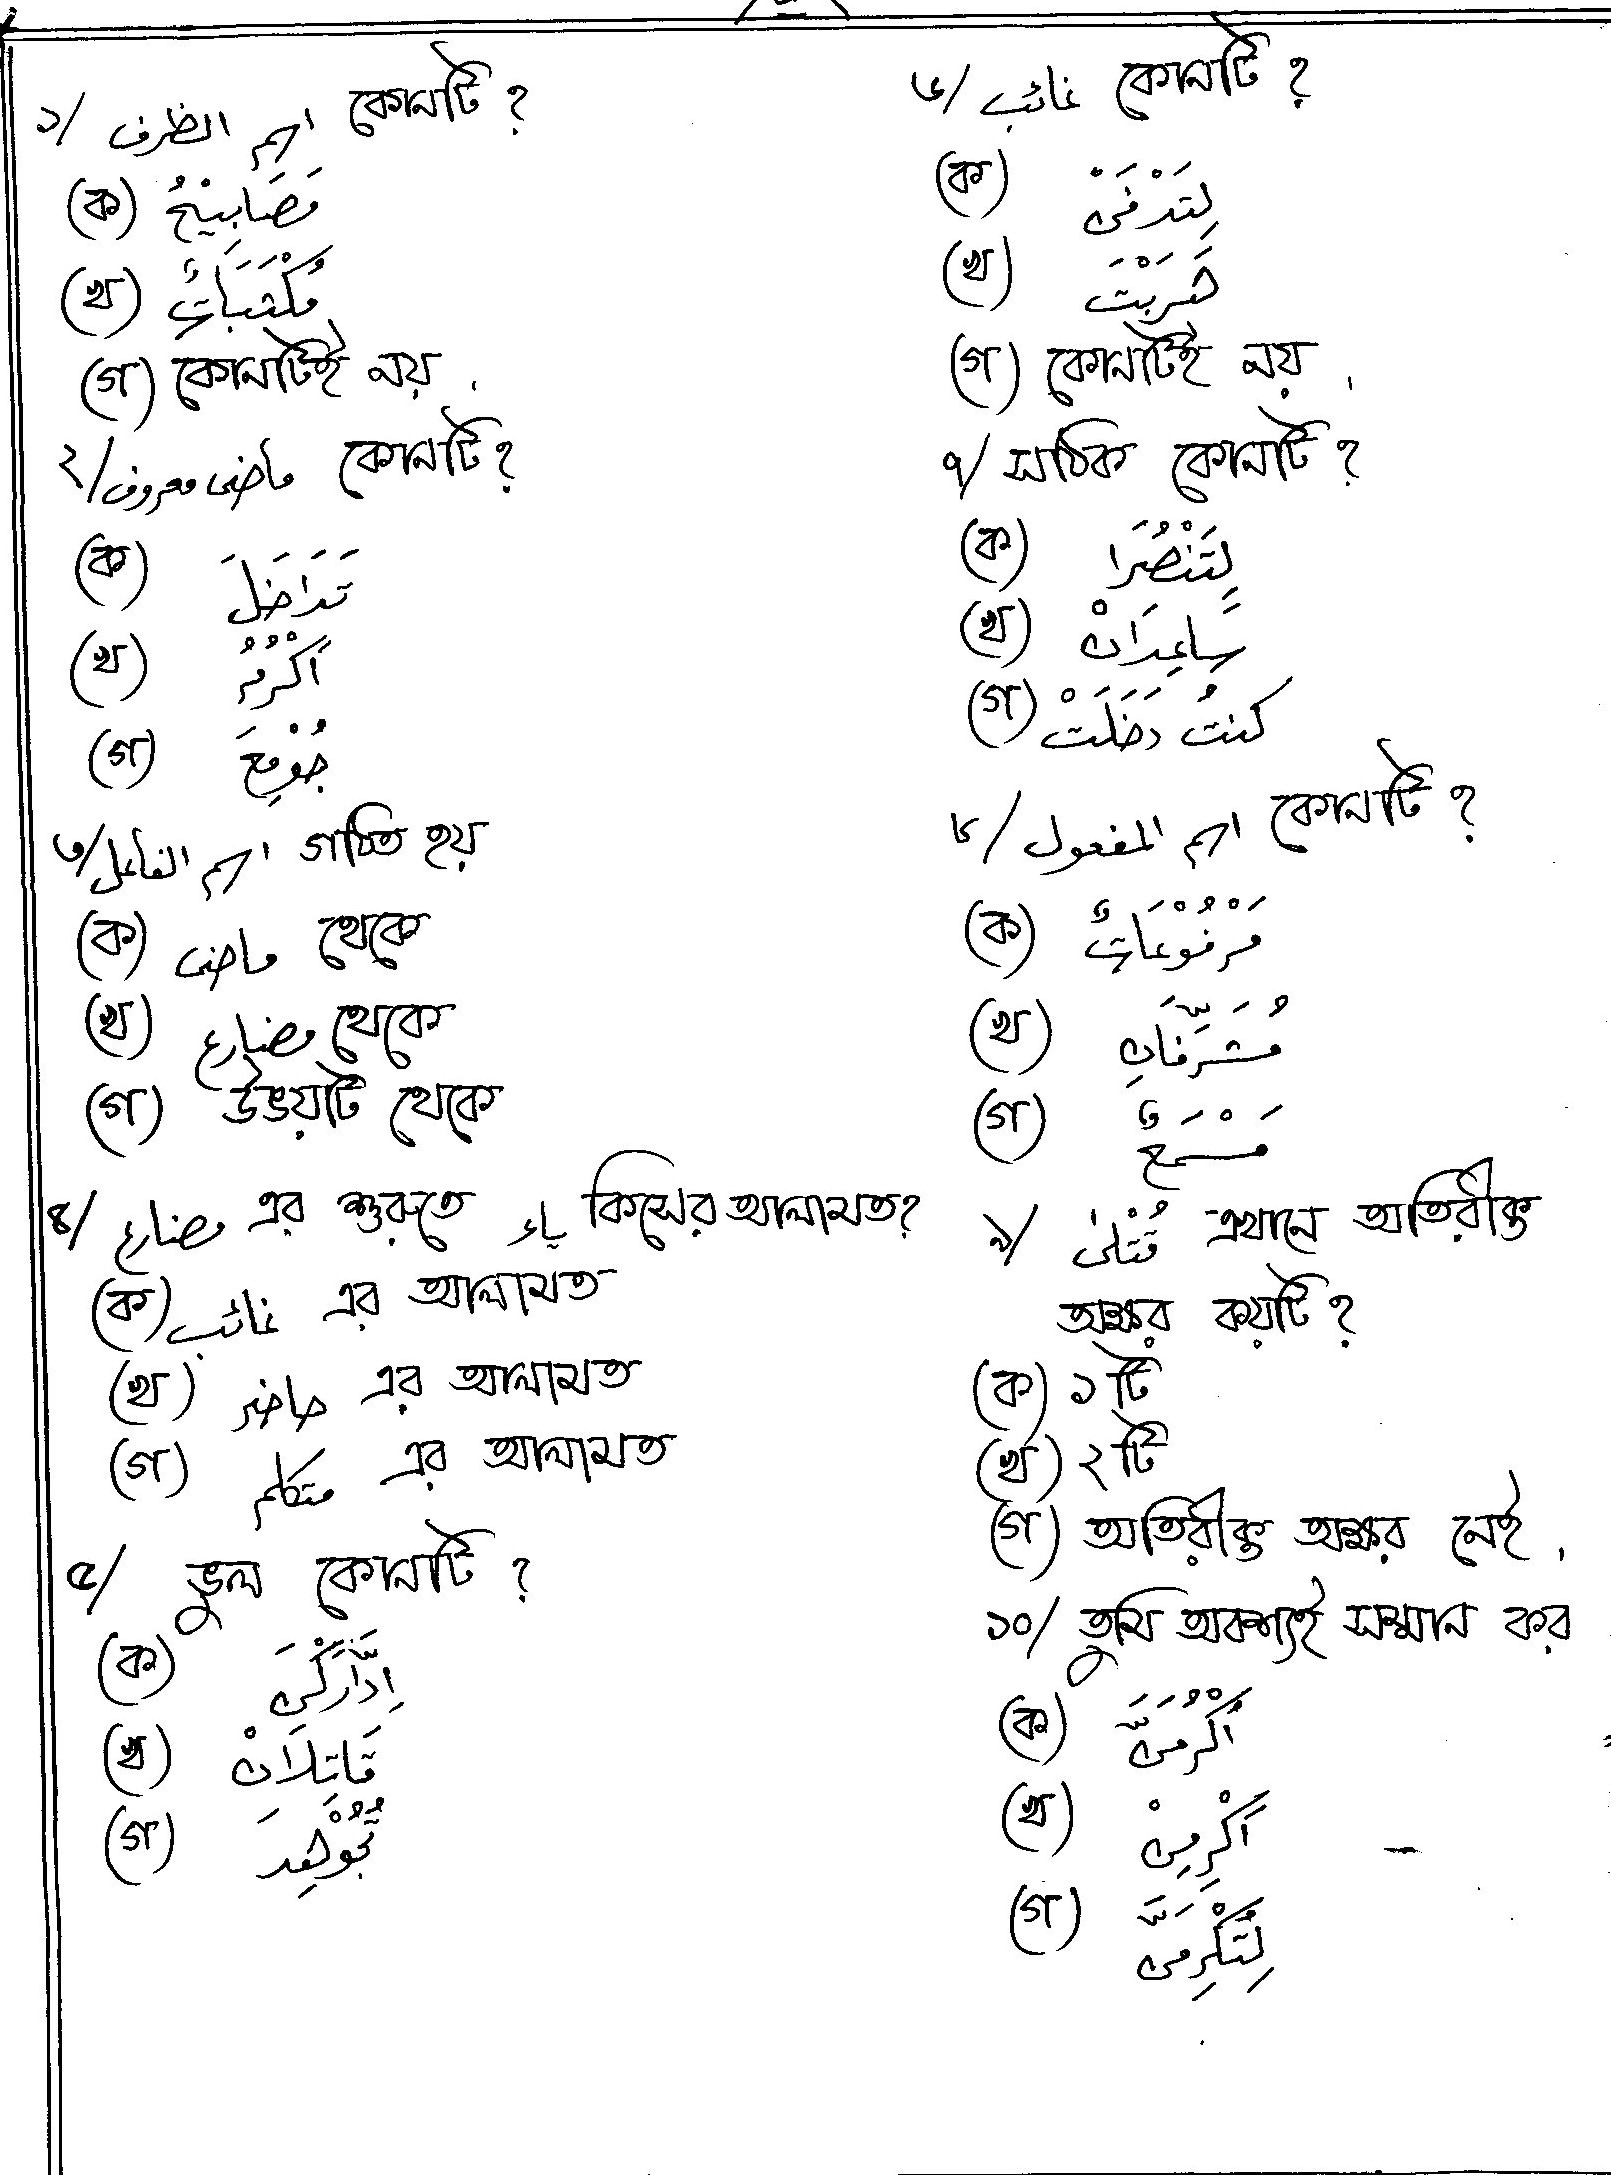 ১/ اسم الظرف কোনটি ?
(ক) مَصَابِيْحُ
(খ) مُكْتَبَاتٌ
(গ) কোনটিই নয়.
২/ ماضى معروف কোনটি ?
(ক) تَدَاخَلَ
(খ) اُكْرُمُ
(গ) جُوْمِعَ
৩/ اسم الفاعل গঠিত হয়
(ক) ماضى থেকে
(খ) مضارع থেকে
(গ) উভয়টি থেকে
৪/ مضارع এর শুরুতে ياء কিসের আলামত?
(ক) غائب এর আলামত
(খ) حاضر এর আলামত
(গ) متكلم এর আলামত
৫/ ভুল কোনটি ?
(ক) اِدَّارَكْنَ
(খ) قَاتِلَانْ
(গ) تُجُوْهِدَ
৬/ غائب কোনটি ?
(ক)
(খ) ضَرَبْتَ
(গ) কোনটিই নয়.
৭/ সঠিক কোনটি ?
(ক) لِتَنْصُرَا
(খ) سَاعِدَانْ
(গ) كنتُ دَخَلَتْ
৮/ اسم المفعول কোনটি ?
(ক) مَرْفُوْعَاتٌ
(খ) مُشَرَّفَانِ
(গ) مَسْمَعٌ
৯/ قُتِلْنَ এখানে অতিরীক্ত
অক্ষর কয়টি ?
(ক) ১টি
(খ) ২টি
(গ) অতিরীক্ত অক্ষর নেই.
১০/ তুমি অবশ্যই সম্মান কর
(ক) اُكْرُمَنَّ
(খ) اَكْرِمِنْ
(গ) لِتُكْرِمَنَّ